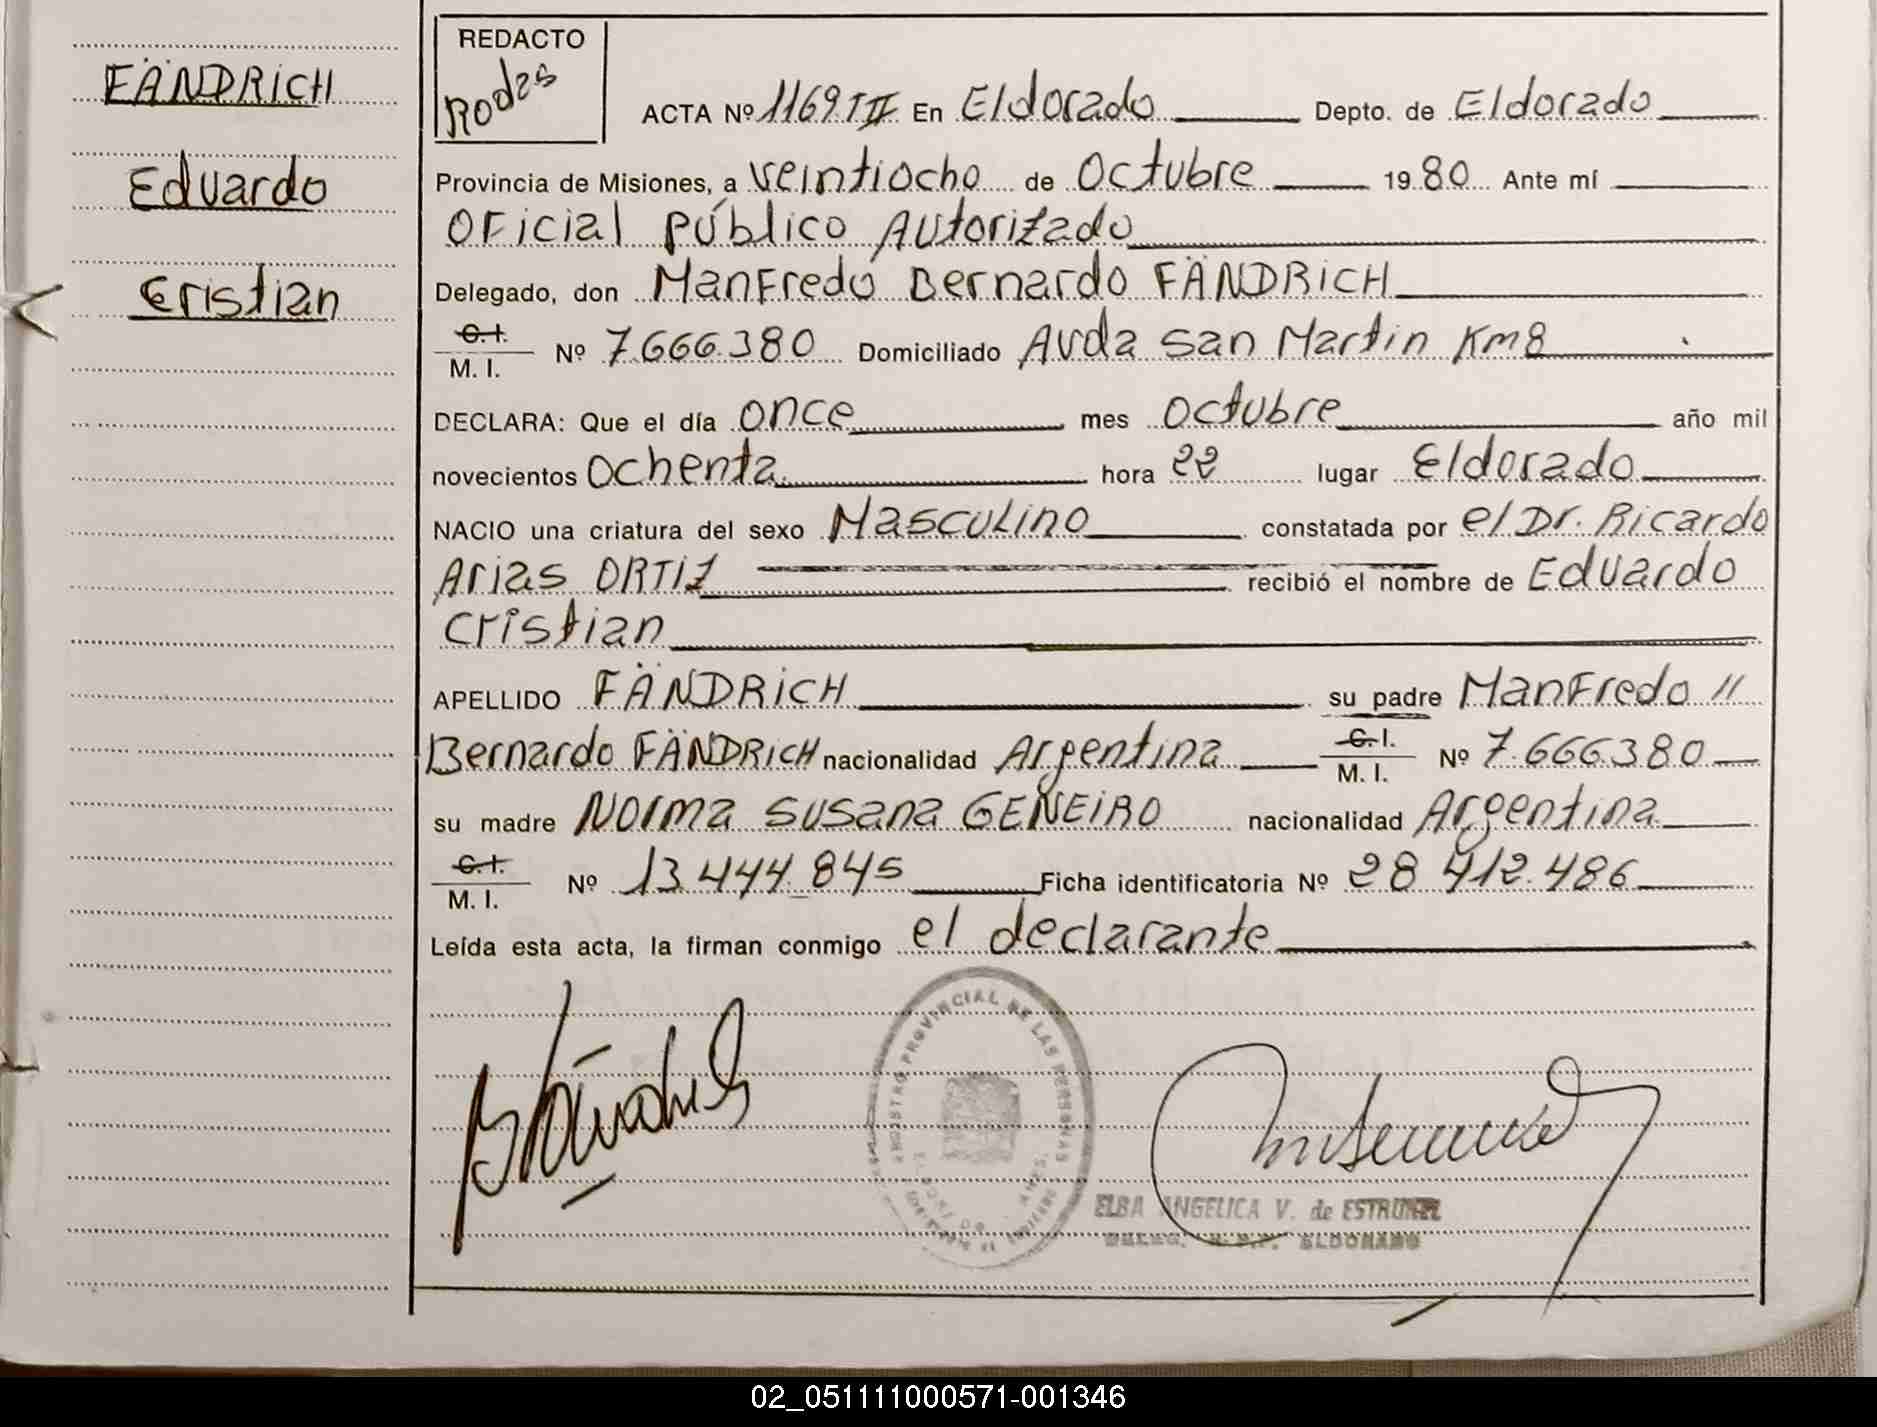 FÄNDRICH
Eduardo
Cristian
REDACTO
Rodas
ACTA Nº 1169 T II En Eldorado Depto. de Eldorado
Provincia de Misiones, a veintiocho de Octubre 1980 Ante mí
Oficial Público Autorizado
Delegado, don Manfredo Bernardo FÄNDRICH
C.I.
M. I. Nº 7.666.380 Domiciliado Avda San Martin Km 8
DECLARA: Que el día once mes octubre año mil
novecientos ochenta hora 22 lugar Eldorado
NACIO una criatura del sexo Masculino constatada por el Dr. Ricardo
Arias ORTIZ recibió el nombre de Eduardo
Cristian
APELLIDO FÄNDRICH su padre Manfredo //
Bernardo FÄNDRICH nacionalidad Argentina C.I. M. I. Nº 7.666.380
su madre Norma Susana GENEIRO nacionalidad Argentina
C.I.
M. I. Nº 13.444.845 Ficha identificatoria Nº 28.412.486
Leída esta acta, la firman conmigo el declarante
REGISTRO PROVINCIAL DE LAS PERSONAS
ELBA ANGELICA V. de ESTRUNEL
DELEG. R.P.P. ELDORADO
02_051111000571-001346